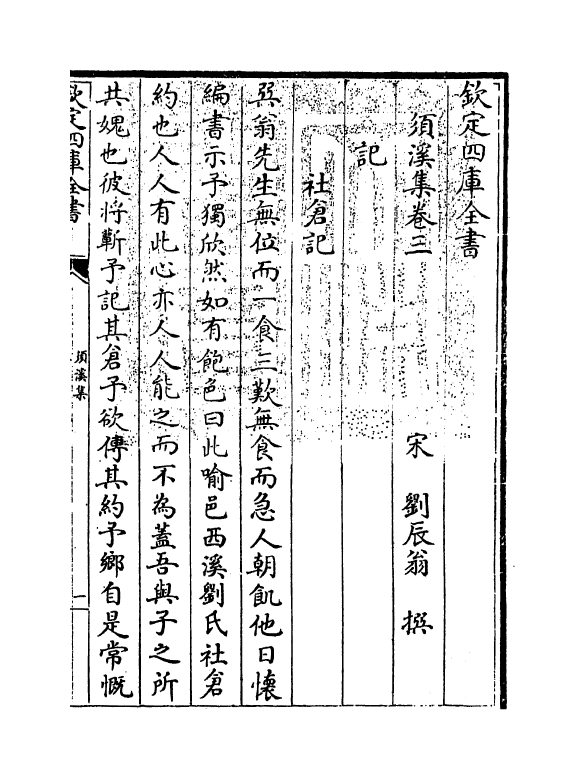 欽定四庫全書
須溪集卷三
宋 劉辰翁 撰
記
社倉記
巽翁先生無位而一食三歎無食而急人朝飢他日懷
編書示予獨欣然如有飽色曰此喻邑西溪劉氏社倉
約也人人有此心亦人人能之而不為蓋吾與子之所
共媿也彼將蘄予記其倉予欲傳其約予鄉自是常慨
欽定四庫全書
須溪集
一